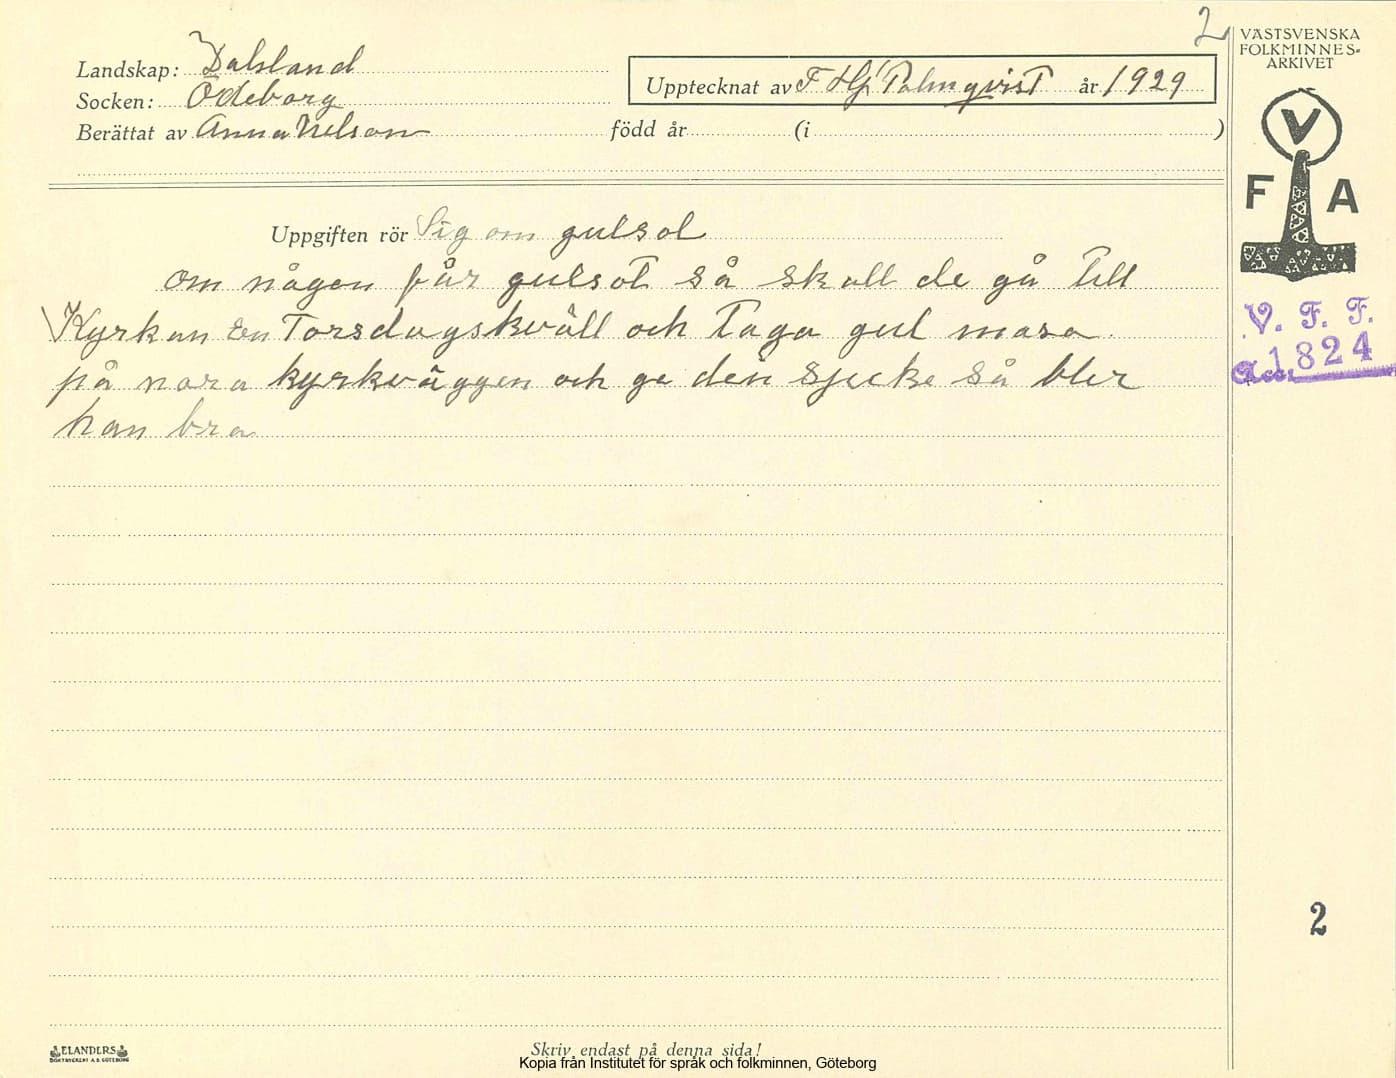 2
VÄSTSVENSKA
FOLKMINNES-
ARKIVET
Landskap: Dalsland
Socken: Ödeborg
Berättat av Anna Nelson född år (i )
Upptecknat av F Hj Palmqvist år 1929
V
F A
V. F. F.
Acc. 1824
Uppgiften rör Sig om gulsot
om någon får gulsot så skall de gå till
Kyrkan En Torsdagskväll och Taga gul masa
på nora kyrkväggen och ge den Sjucke så blir
han bra
2
ELANDERS
BOKTRYCKERI A.B. GÖTEBORG
Skriv endast på denna sida!
Kopia från Institutet för språk och folkminnen, Göteborg